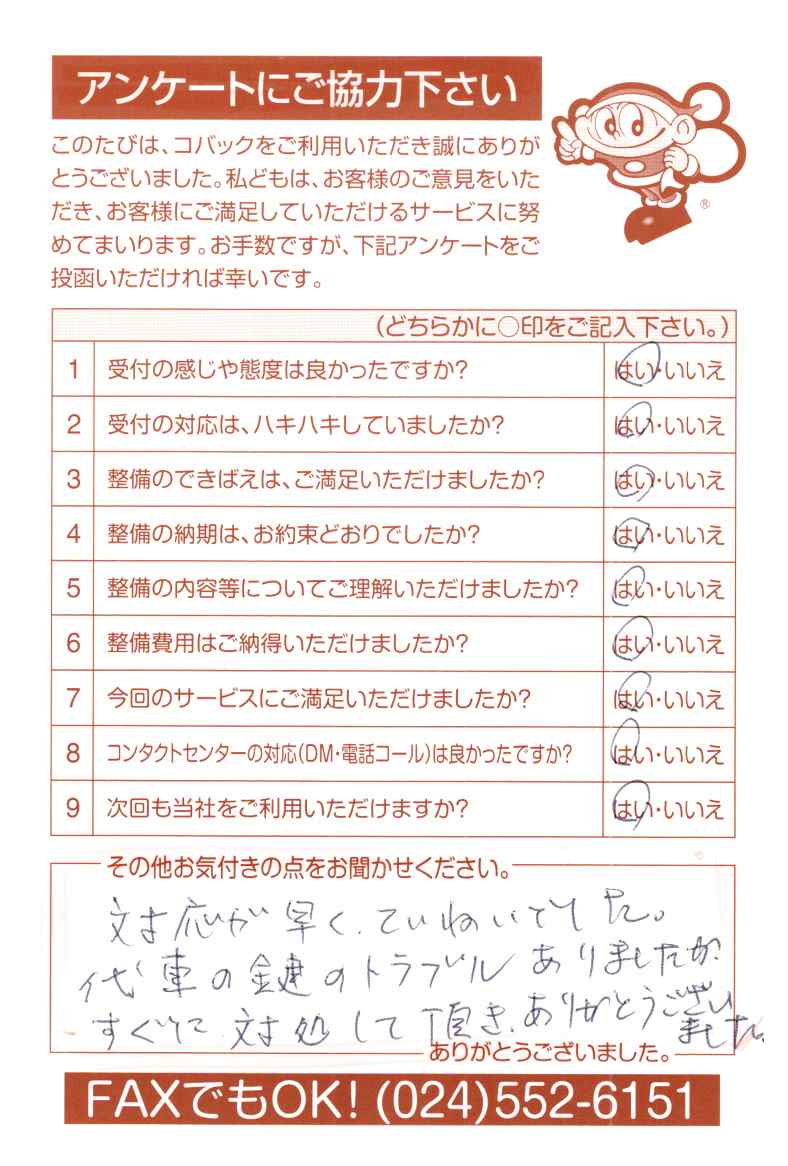 アンケートにご協力下さい
このたびは、コバックをご利用いただき誠にありが
とうございました。私どもは、お客様のご意見をいた
だき、お客様にご満足していただけるサービスに努
めてまいります。お手数ですが、下記アンケートをご
投函いただければ幸いです。
®
(どちらかに○印をご記入下さい。)
1 受付の感じや態度は良かったですか? はい・いいえ
2 受付の対応は、ハキハキしていましたか? はい・いいえ
3 整備のできばえは、ご満足いただけましたか? はい・いいえ
4 整備の納期は、お約束どおりでしたか? はい・いいえ
5 整備の内容等についてご理解いただけましたか? はい・いいえ
6 整備費用はご納得いただけましたか? はい・いいえ
7 今回のサービスにご満足いただけましたか? はい・いいえ
8 コンタクトセンターの対応(DM・電話コール)は良かったですか? はい・いいえ
9 次回も当社をご利用いただけますか? はい・いいえ
その他お気付きの点をお聞かせください。
対応が早く、ていねいでした。
代車の鍵のトラブルありましたが
すぐに対処して頂き、ありがとうございました。
ありがとうございました。
FAXでもOK! (024)552-6151